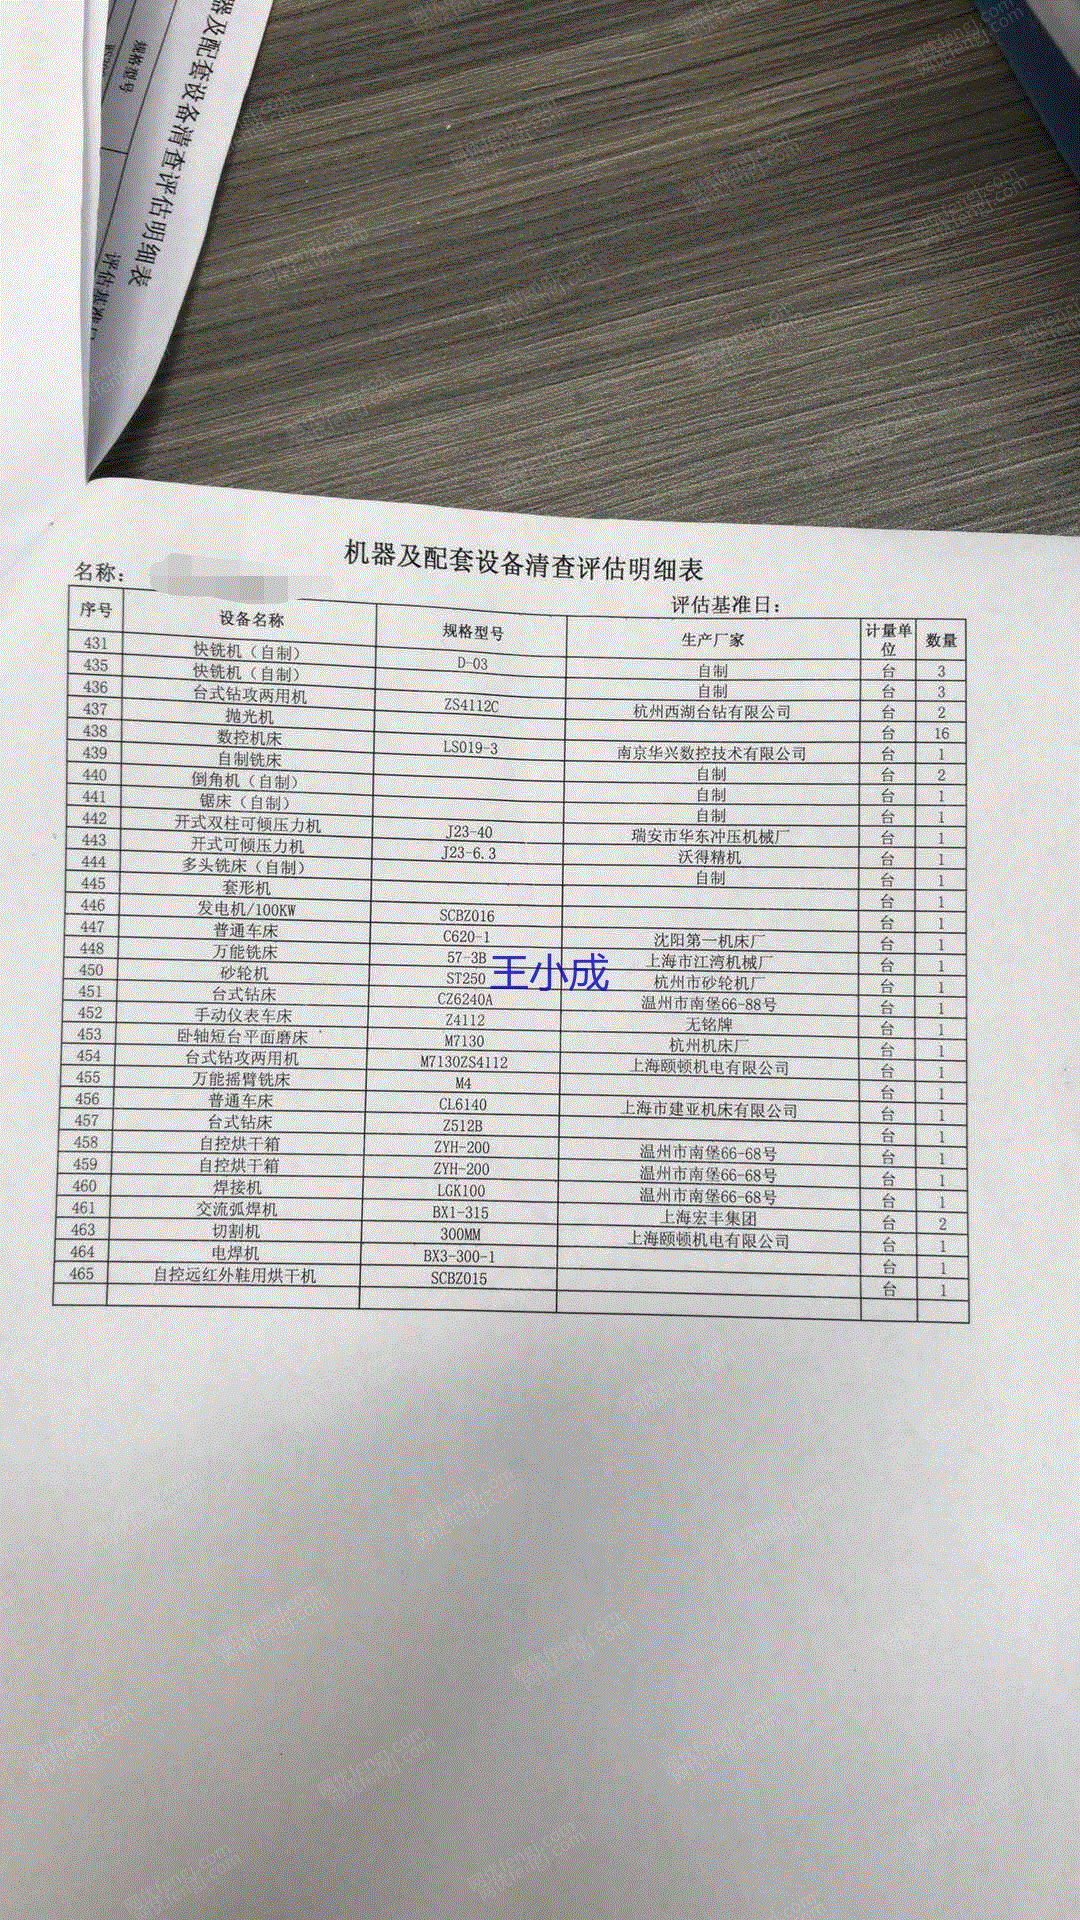 器及配套设备清查评估明细表
规格型号
机器及配套设备清查评估明细表
名称：
评估基准日：
序号 设备名称 规格型号 生产厂家 计量单位 数量
431 快铣机（自制） D-03 自制 台 3
435 快铣机（自制） 自制 台 3
436 台式钻攻两用机 ZS4112C 杭州西湖台钻有限公司 台 2
437 抛光机 台 16
438 数控机床 LS019-3 南京华兴数控技术有限公司 台 1
439 自制铣床 自制 台 2
440 倒角机（自制） 自制 台 1
441 锯床（自制） 自制 台 1
442 开式双柱可倾压力机 J23-40 瑞安市华东冲压机械厂 台 1
443 开式可倾压力机 J23-6.3 沃得精机 台 1
444 多头铣床（自制） 自制 台 1
445 套形机 台 1
446 发电机/100KW SCBZ016 台 1
447 普通车床 C620-1 沈阳第一机床厂 台 1
448 万能铣床 57-3B 上海市江湾机械厂 台 1
450 砂轮机 ST250 杭州市砂轮机厂 台 1
451 台式钻床 CZ6240A 温州市南堡66-88号 台 1
452 手动仪表车床 Z4112 无铭牌 台 1
453 卧轴短台平面磨床 M7130 杭州机床厂 台 1
454 台式钻攻两用机 M7130ZS4112 上海颐顿机电有限公司 台 1
455 万能摇臂铣床 M4 台 1
456 普通车床 CL6140 上海市建亚机床有限公司 台 1
457 台式钻床 Z512B 台 1
458 自控烘干箱 ZYH-200 温州市南堡66-68号 台 1
459 自控烘干箱 ZYH-200 温州市南堡66-68号 台 1
460 焊接机 LGK100 温州市南堡66-68号 台 1
461 交流弧焊机 BX1-315 上海宏丰集团 台 2
463 切割机 300MM 上海颐顿机电有限公司 台 1
464 电焊机 BX3-300-1 台 1
465 自控远红外鞋用烘干机 SCBZ015 台 1
王小成